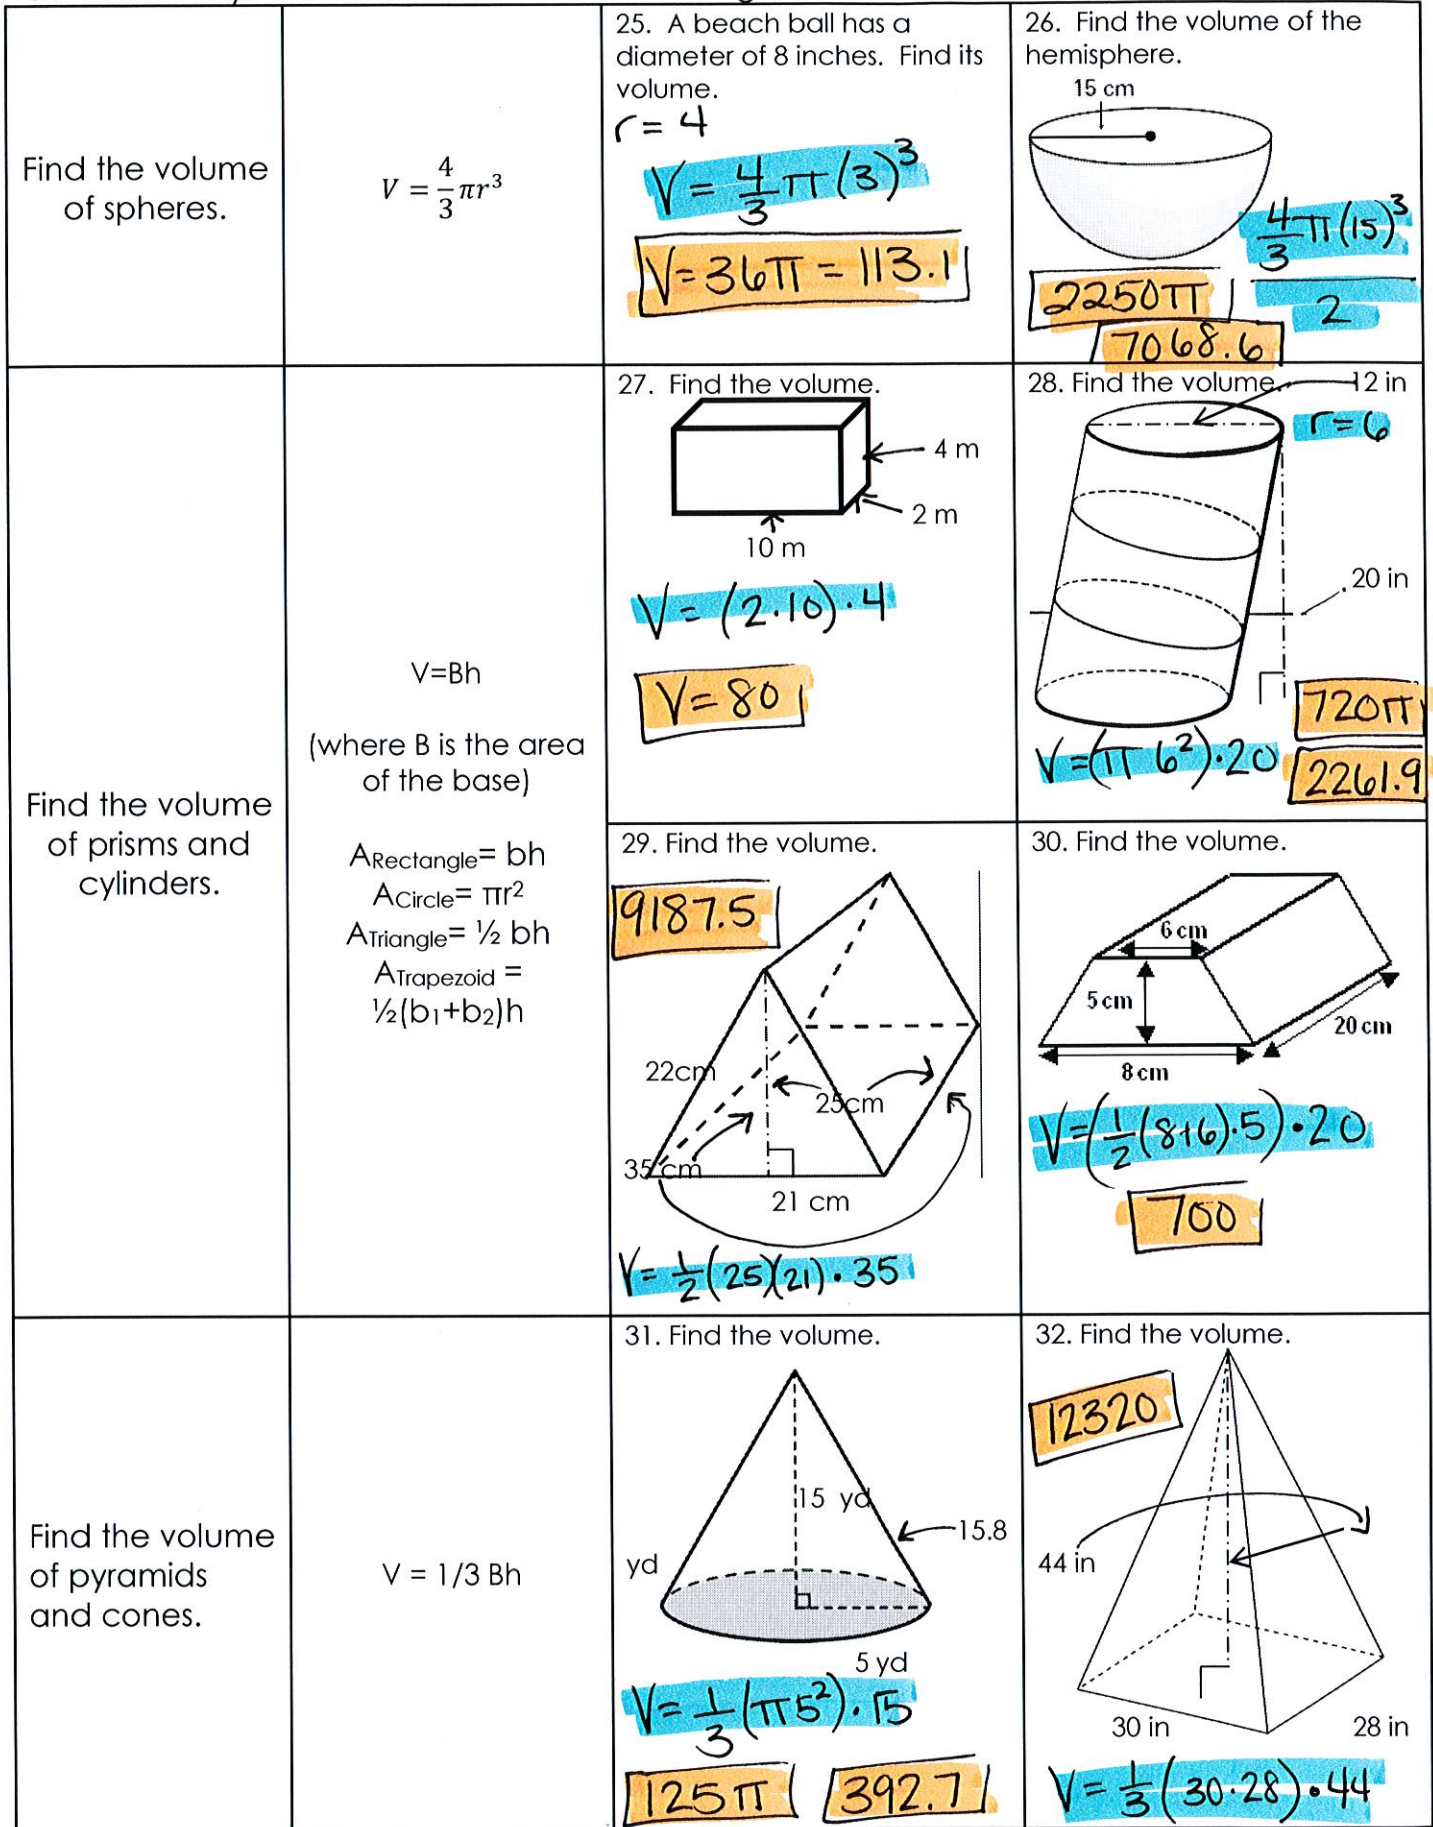 Find the volume
of spheres.
V = 4/3 πr³
25. A beach ball has a
diameter of 8 inches. Find its
volume.
r = 4
V = 4/3 π (3)³
V = 36π = 113.1
26. Find the volume of the
hemisphere.
15 cm
4/3 π (15)³
2
2250π
7068.6
Find the volume
of prisms and
cylinders.
V=Bh
(where B is the area
of the base)
ARectangle= bh
ACircle= πr²
ATriangle= ½ bh
ATrapezoid =
½(b₁+b₂)h
27. Find the volume.
4 m
2 m
10 m
V = (2·10)·4
V = 80
28. Find the volume.
12 in
r = 6
20 in
720π
V = (π 6²)·20
2261.9
29. Find the volume.
9187.5
22cm
25cm
35 cm
21 cm
V = 1/2 (25)(21) · 35
30. Find the volume.
6 cm
5 cm
20 cm
8 cm
V = (1/2 (8+6)·5) · 20
700
Find the volume
of pyramids
and cones.
V = 1/3 Bh
31. Find the volume.
15 yd
15.8
yd
5 yd
V = 1/3 (π5²) · 15
125π
392.7
32. Find the volume.
12320
44 in
30 in
28 in
V = 1/3 (30·28) · 44